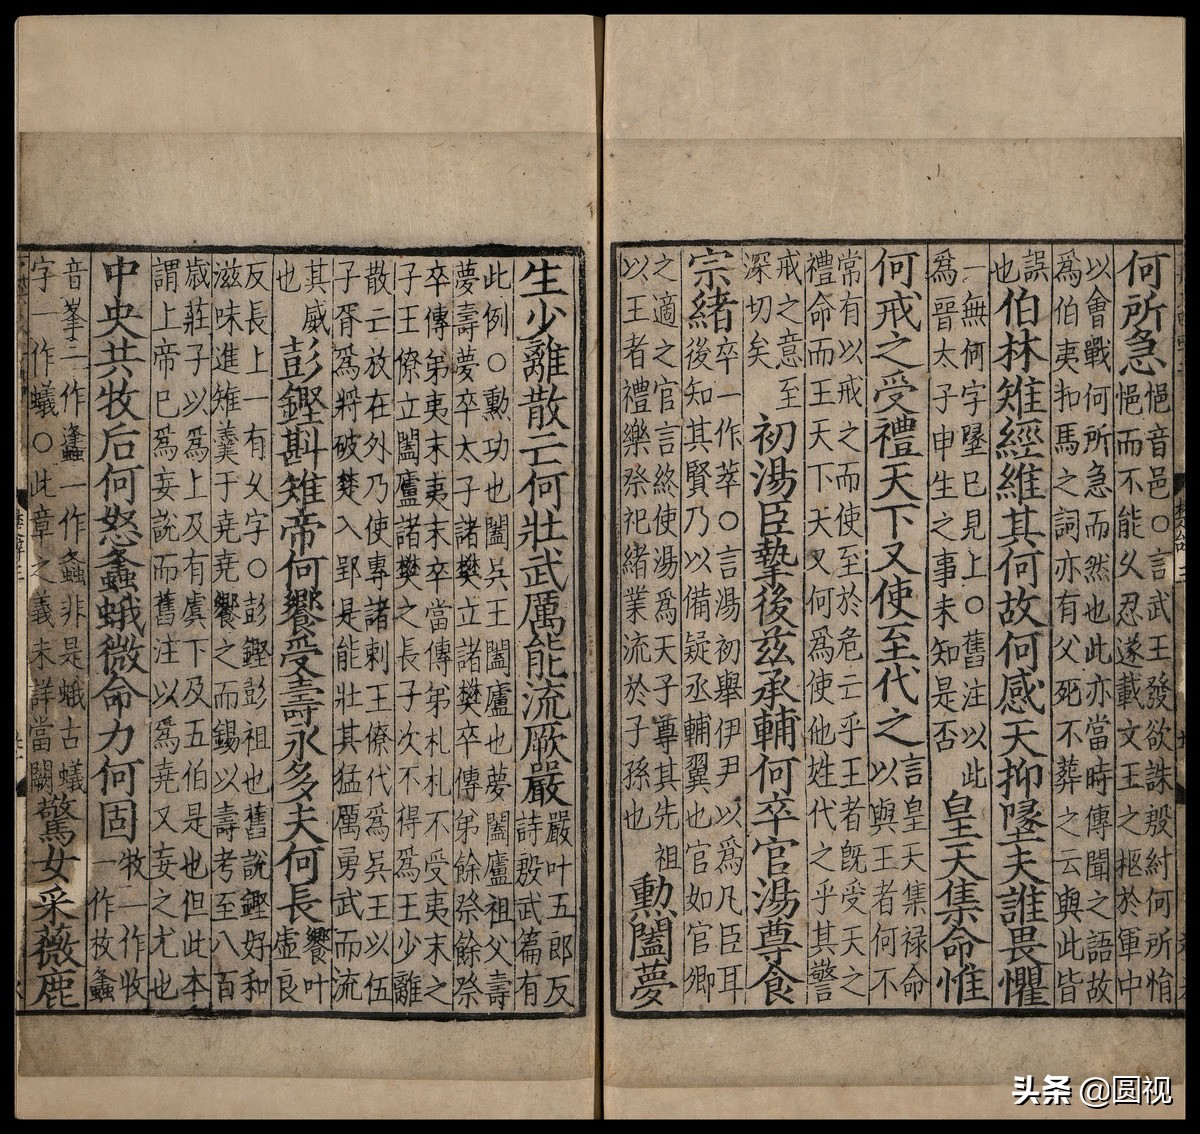 何所急悒音邑○言武王發欲誅殷紂何所悁
悒而不能久忍遂載文王之柩於軍中
以會戰何所急而然也此亦當時傳聞之語故
爲伯夷扣馬之詞亦有父死不葬之云與此皆
誤
也
伯林雉經維其何故何感天抑墜夫誰畏懼
一無何字墜巳見上○舊注以此
爲晉太子申生之事未知是否
皇天集命惟
何戒之受禮天下又使至代之
言皇天集禄命
以與王者何不
常有以戒之而使至於危亡乎王者旣受天之
禮命而王天下天又何爲使他姓代之乎其警
戒之意至
深切矣
初湯臣摯後兹承輔何卒官湯尊食
宗緒
卒一作萃○言湯初舉伊尹以爲凡臣耳
後知其賢乃以備疑丞輔翼也官如官卿
之適之官言終使湯爲天子尊其先祖
以王者禮樂祭祀緒業流於子孫也
勲闔夢
生少離散亡何壯武厲能流厥嚴
嚴叶五郎反
詩殷武篇有
此例○勲功也闔吳王闔廬也夢闔廬祖父壽
夢壽夢卒太子諸樊立諸樊卒傳弟餘祭餘祭
卒傳弟夷末夷末卒當傳弟札札不受夷末之
子王僚立闔廬諸樊之長子次不得爲王少離
散亡放在外乃使專諸刺王僚代爲吳王以伍
子胥爲將破楚入郢是能壯其猛厲勇武而流
其威
也
彭鏗斟雉帝何饗受壽永多夫何長
饗叶
虛良
反長上一有夂字○彭鏗彭祖也舊說鏗好和
滋味進雉羹于堯堯饗之而錫以壽考至八百
歲莊子以爲上及有虞下及五伯是也但此本
謂上帝巳爲妄說而舊注以爲堯又妄之尤也
中央共牧后何怒蠭蛾微命力何固
牧二作收
一作枚蠭
音峯二作蠭一作螽非是蛾古蟻
字一作蟻○此章之義未詳當闕
驚女采薇鹿
头条 @圆视